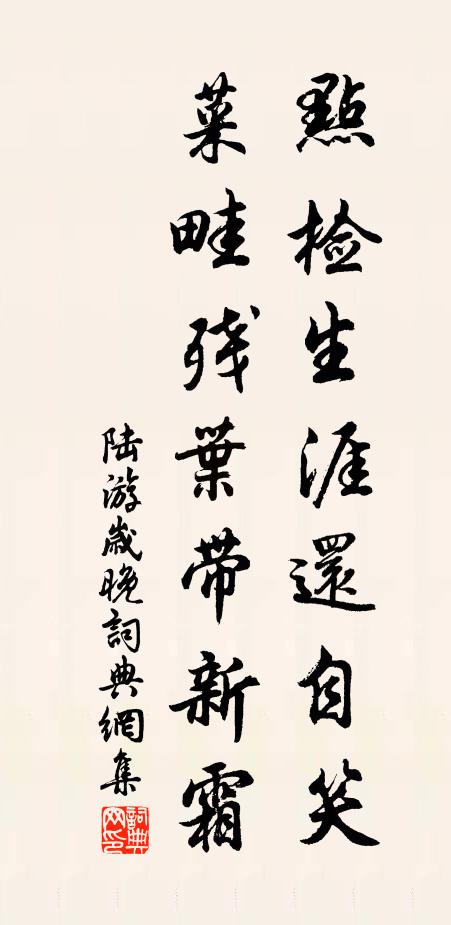 點檢生涯還自笑
菜畦殘葉帶新霜
陆游歲晚詞典網集
詞典网印